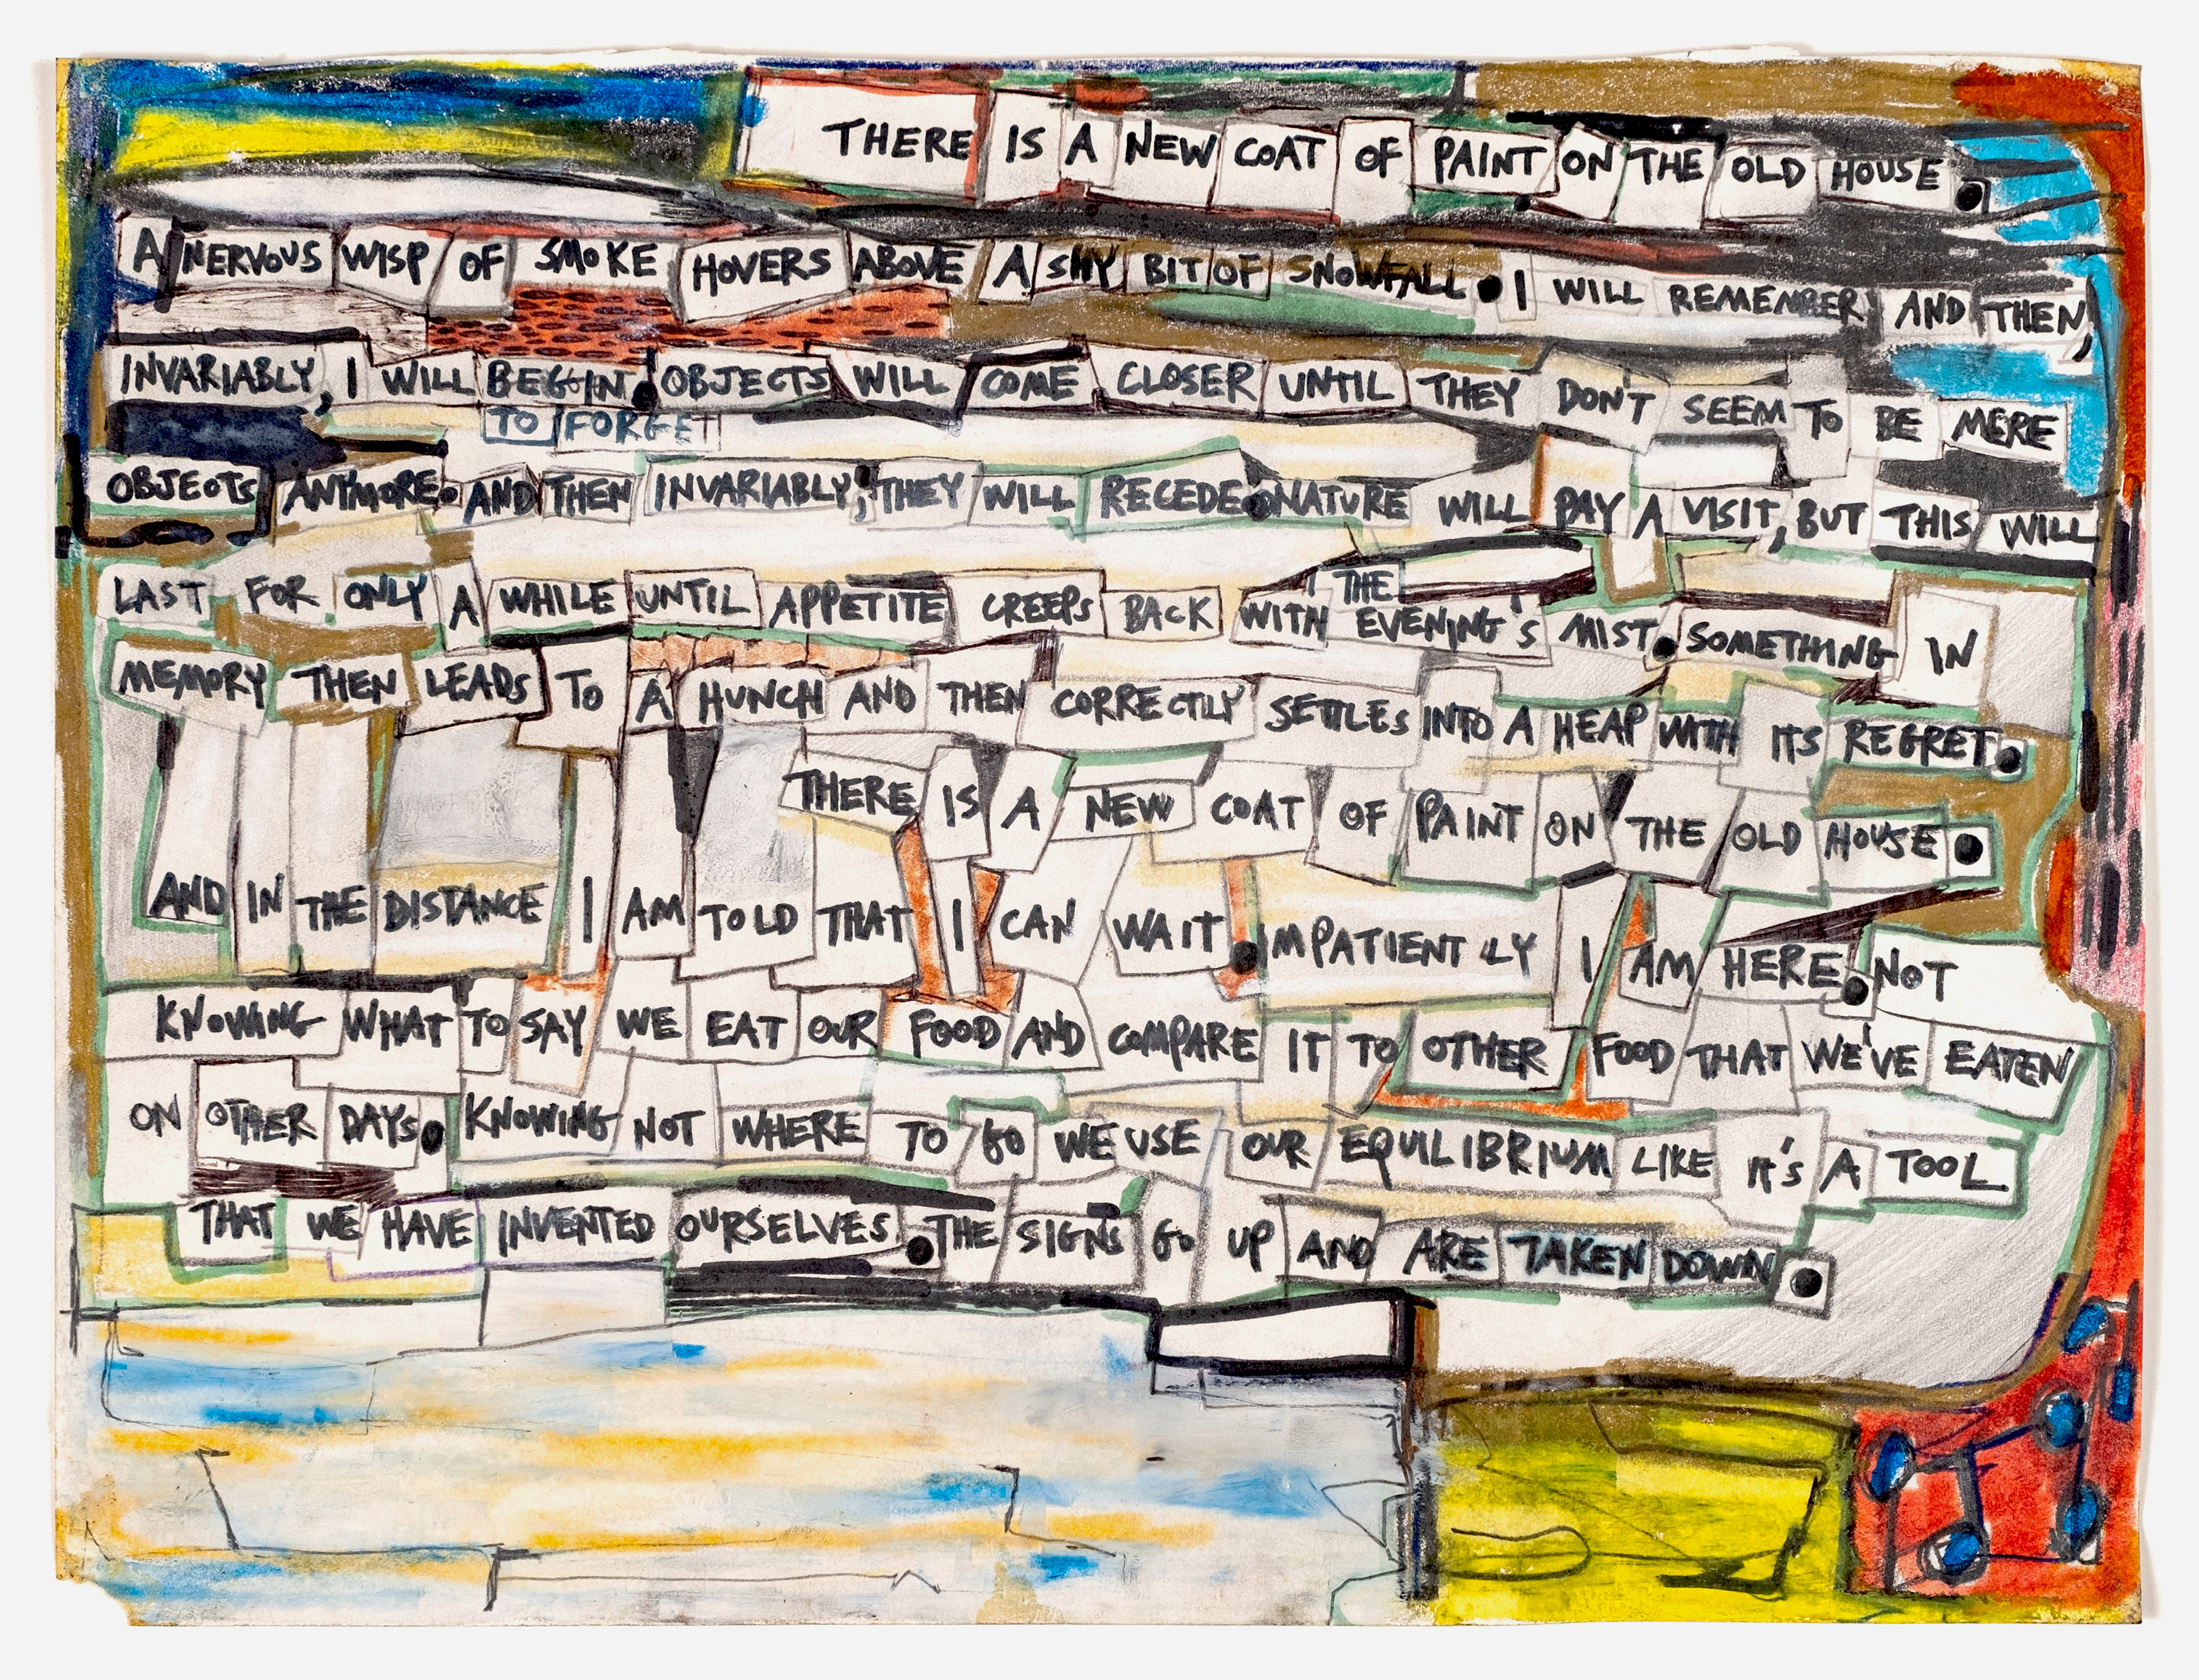 THERE IS A NEW COAT OF PAINT ON THE OLD HOUSE.
A NERVOUS WISP OF SMOKE HOVERS ABOVE A SHY BIT OF SNOWFALL. I WILL REMEMBER AND THEN,
INVARIABLY, I WILL BEGIN. OBJECTS WILL COME CLOSER UNTIL THEY DON'T SEEM TO BE MERE
TO FORGET
OBJECTS ANYMORE. AND THEN INVARIABLY, THEY WILL RECEDE. NATURE WILL PAY A VISIT, BUT THIS WILL
THE
LAST FOR ONLY A WHILE UNTIL APPETITE CREEPS BACK WITH EVENING'S MIST. SOMETHING IN
MEMORY THEN LEADS TO A HUNCH AND THEN CORRECTLY SETTLES INTO A HEAP WITH ITS REGRET.
THERE IS A NEW COAT OF PAINT ON THE OLD HOUSE.
AND IN THE DISTANCE I AM TOLD THAT I CAN WAIT. IMPATIENTLY I AM HERE. NOT
KNOWING WHAT TO SAY WE EAT OUR FOOD AND COMPARE IT TO OTHER FOOD THAT WE'VE EATEN
ON OTHER DAYS. KNOWING NOT WHERE TO GO WE USE OUR EQUILIBRIUM LIKE IT'S A TOOL
THAT WE HAVE INVENTED OURSELVES. THE SIGNS GO UP AND ARE TAKEN DOWN.